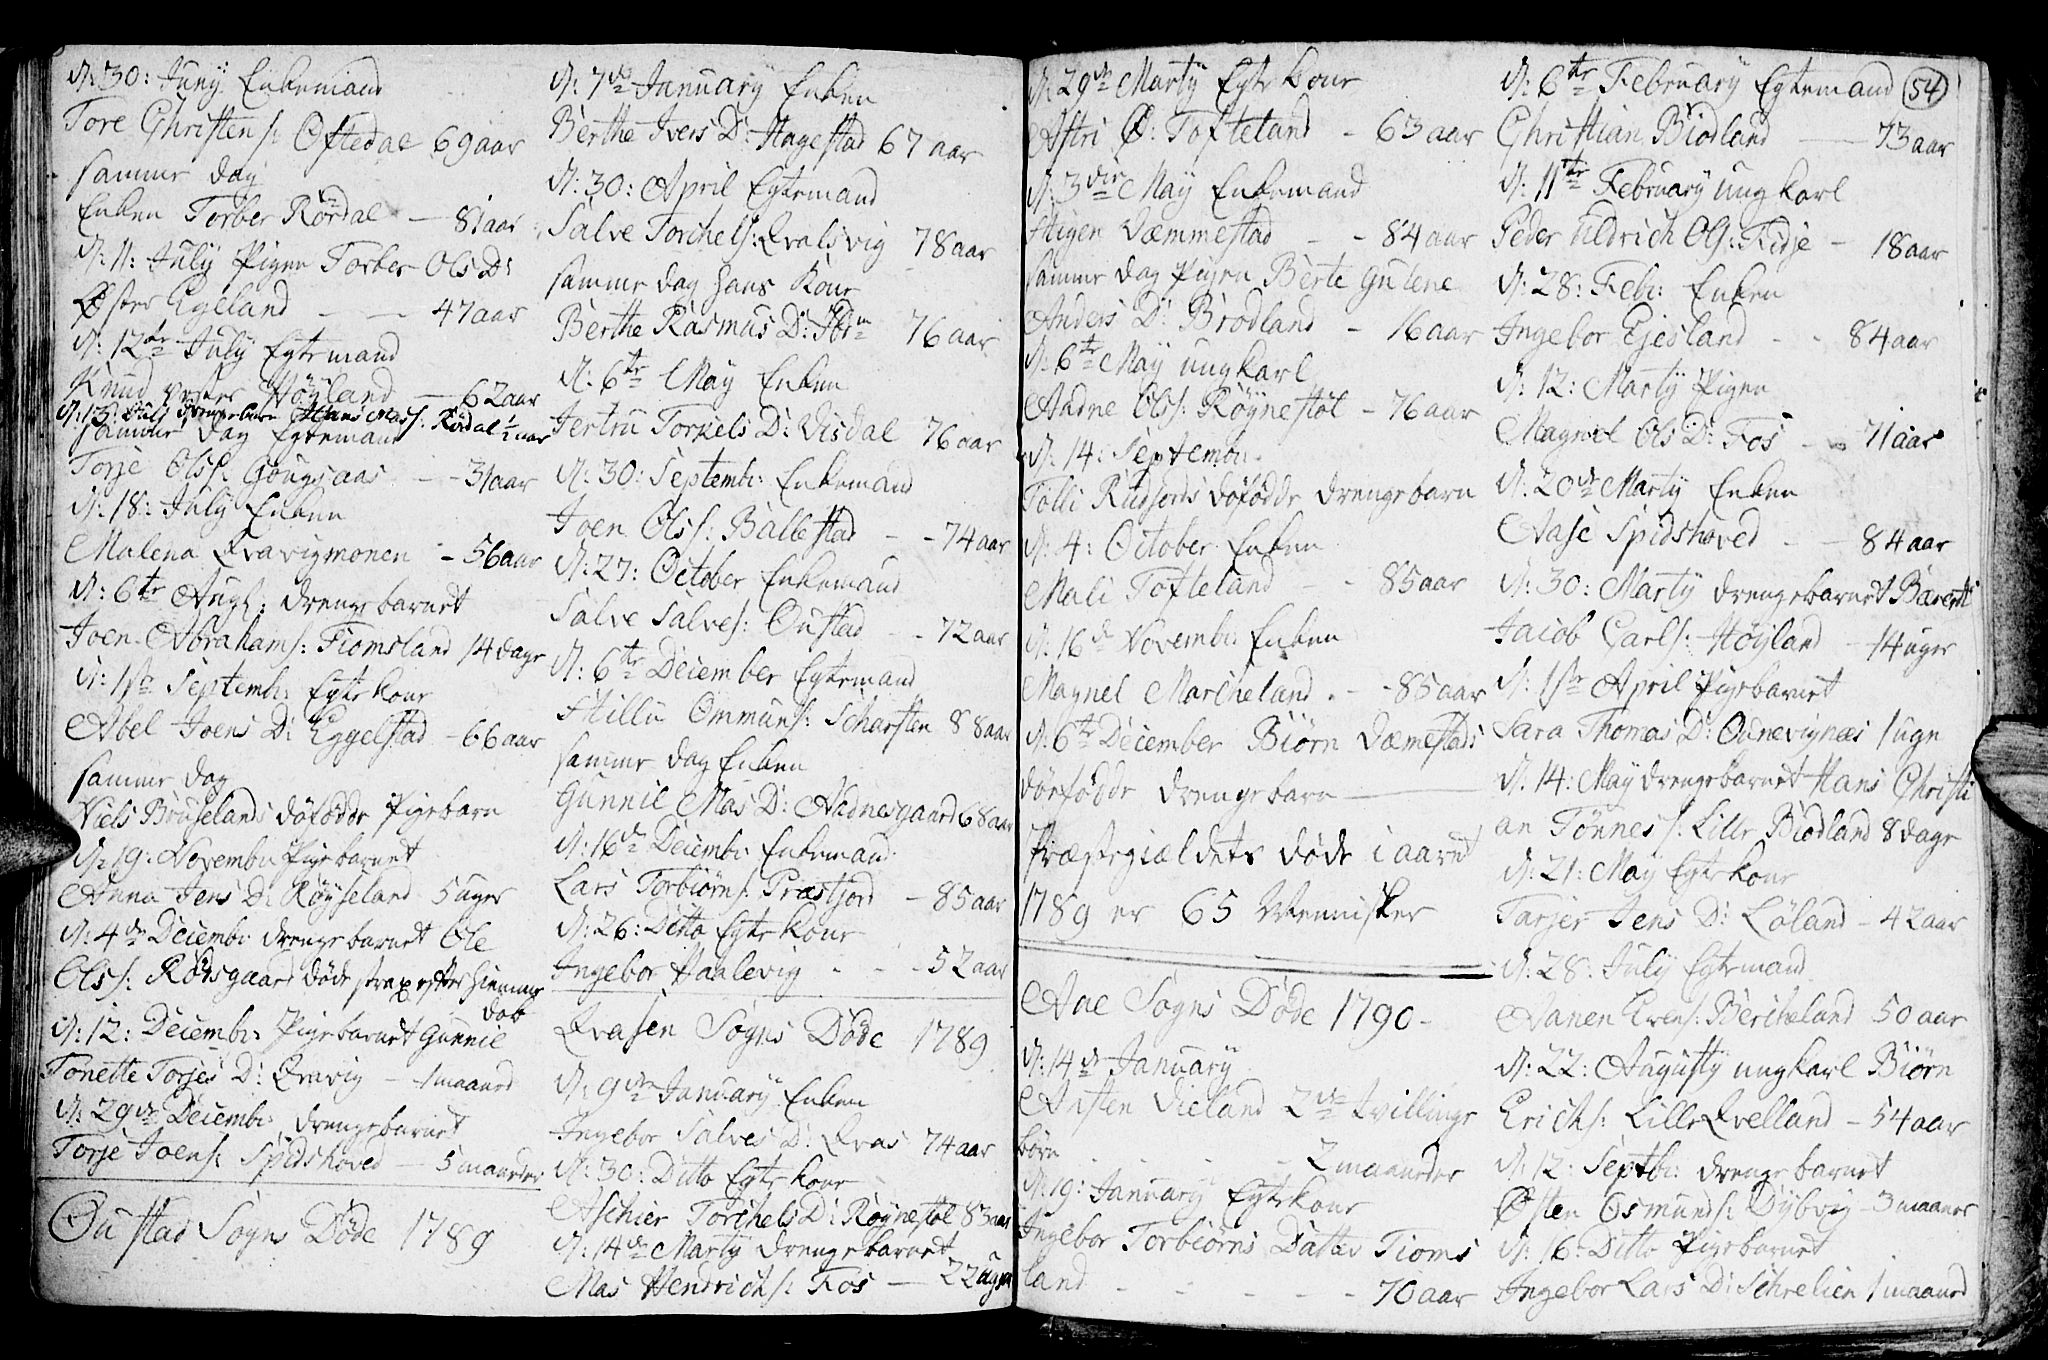 d: 30: Juny Enkemand
Tore Christens: Oftedal 69 aar
samme dag
Enken Torber Rördal — 81 aar
d: 11: July Pigen Torber Ols Dr
Øster Egeland — — 47 aar
d: 12te July Egtemand
Knud vester Höÿland — 62 aar
d: 13: July drengebarn Hans Mass: Rödal ½ aar
samme dag Egtemand
Torje Olss: Gougsaas — 31 aar
d: 18: July Enken
Malena Qvavigmonen — 56 aar
d: 6te Augs: drengebarnet
Joen Abrahams: Fiomsland 14 dage
d: 1ste Septembr: Egtekone
Abel Joens D: Eggelstad — 66 aar
samme dag
Niels Bruselands döfödde Pigebarn
d: 19: Novembr: Pigebarnet
Anna Jens D: Röyseland 5 uger
d: 4de Decembr: drengebarnet Ole
Olss: Rödsgaard döde strax efter hiemme
dob
d: 12: Decembr: Pigebarnet Gunnil
Tonette Torjes D: Qvavig — 1 maaned
d: 29de Decembr: drengebarnet
Torje Joens: Spidshoved — 5 maaneder
Oustad Sogns Döde 1789
d: 7de January Enken
Berthe Ivers D: Hagestad 67 aar
d: 30: April Egtemand
Salve Torchels: Qvalsvig 78 aar
samme dag hans Kone
Berthe Rasmus D: Ibm 76 aar
d: 6te May Enken
Jertru Torkels D: Visdal 76 aar
d: 30: Septembr: Enkemand
Joen Olss: Ballestad — 74 aar
d: 27: October Enkemand
Salve Salves: Oustad — 72 aar
d: 6te December Egtemand
Stillu Ommuns: Scharsten 88 aar
samme dag Enken
Gunnil Mas D: Aadnesgaard 68 aar
d: 16de Decembr: Enkemand
Lars Torbiörns: Præstjord — 85 aar
d: 26: Ditto Egtekone
Ingebor Haalevig — — 52 aar
Qvasen Sogns Döde 1789
d: 9de January Enken
Ingebor Salves D: Qvas 74 aar
d: 30: Ditto Egtekone
Aschier Torchels D: Röynestöl 83 aar
d: 14de Marty drengebarnet
Mas Hendrichs: Fos — 22 uger
d: 29de Marty Egtekone
Astri Ø: Tofteland — 63 aar
d: 3die May Enkemand
Stigen Væmmestad — 84 aar
samme dag Pigen Berte Gulene
Anders D: Brodland — 16 aar
d: 6te May ungkarl
Aadne Olss: Röynestöl — 76 aar
d: 14: Septembr:
Tolli Rudsords döfödde drengebarn
d: 4: October Enken
Mali Tofteland — 85 aar
d: 16de Novembr: Enken
Magnel Marcheland — 85 aar
d: 6te December Biörn Væmestads
dödfödde drengebarn —
Præstegiældets döde i aaret
1789 er 65 Mennisker
Aae Sogns Döde 1790 —
d: 14de January
Aasten Vieland 2de tvillinge
börn — 2 maaneder
d: 19: January Egtekone
Ingebor Torbiörns Datter Fioms
land — 70 aar
54
d: 6te February Egtemand
Christian Biodland — 73 aar
d: 11te February ungkarl
Peder Eldrich Ols: Fidje — 18 aar
d: 28: Febr: Enken
Ingebor Ejesland — 84 aar
d: 12: Marty Pigen
Magnel Ols D: Fos — 71 aar
d: 20de Marty Enken
Aase Spidshoved — 84 aar
d: 30: Marty drengebarnet Barent
Jacob Carls: Höyland — 14 uger
d: 1ste April Pigebarnet
Sara Thomas D: Ounevignæs 1 uge
d: 14: May drengebarnet Hans Christi
an Tönnes: Lille Biodland 8 dage
d: 21: May Egtekone
Tarjer Jens D: Löland — 42 aar
d: 28: July Egtemand
Aanen Evens: Bercheland 50 aar
d: 22: Augusty ungkarl Biörn
Erichs: Lille Qvelland — 54 aar
d: 12: Septbr: drengebarnet
Østen Osmunds: Dybvig — 3 maaner
d: 16: Ditto Pigebarnet
Ingebor Lars D: Schrelien 1 maaned